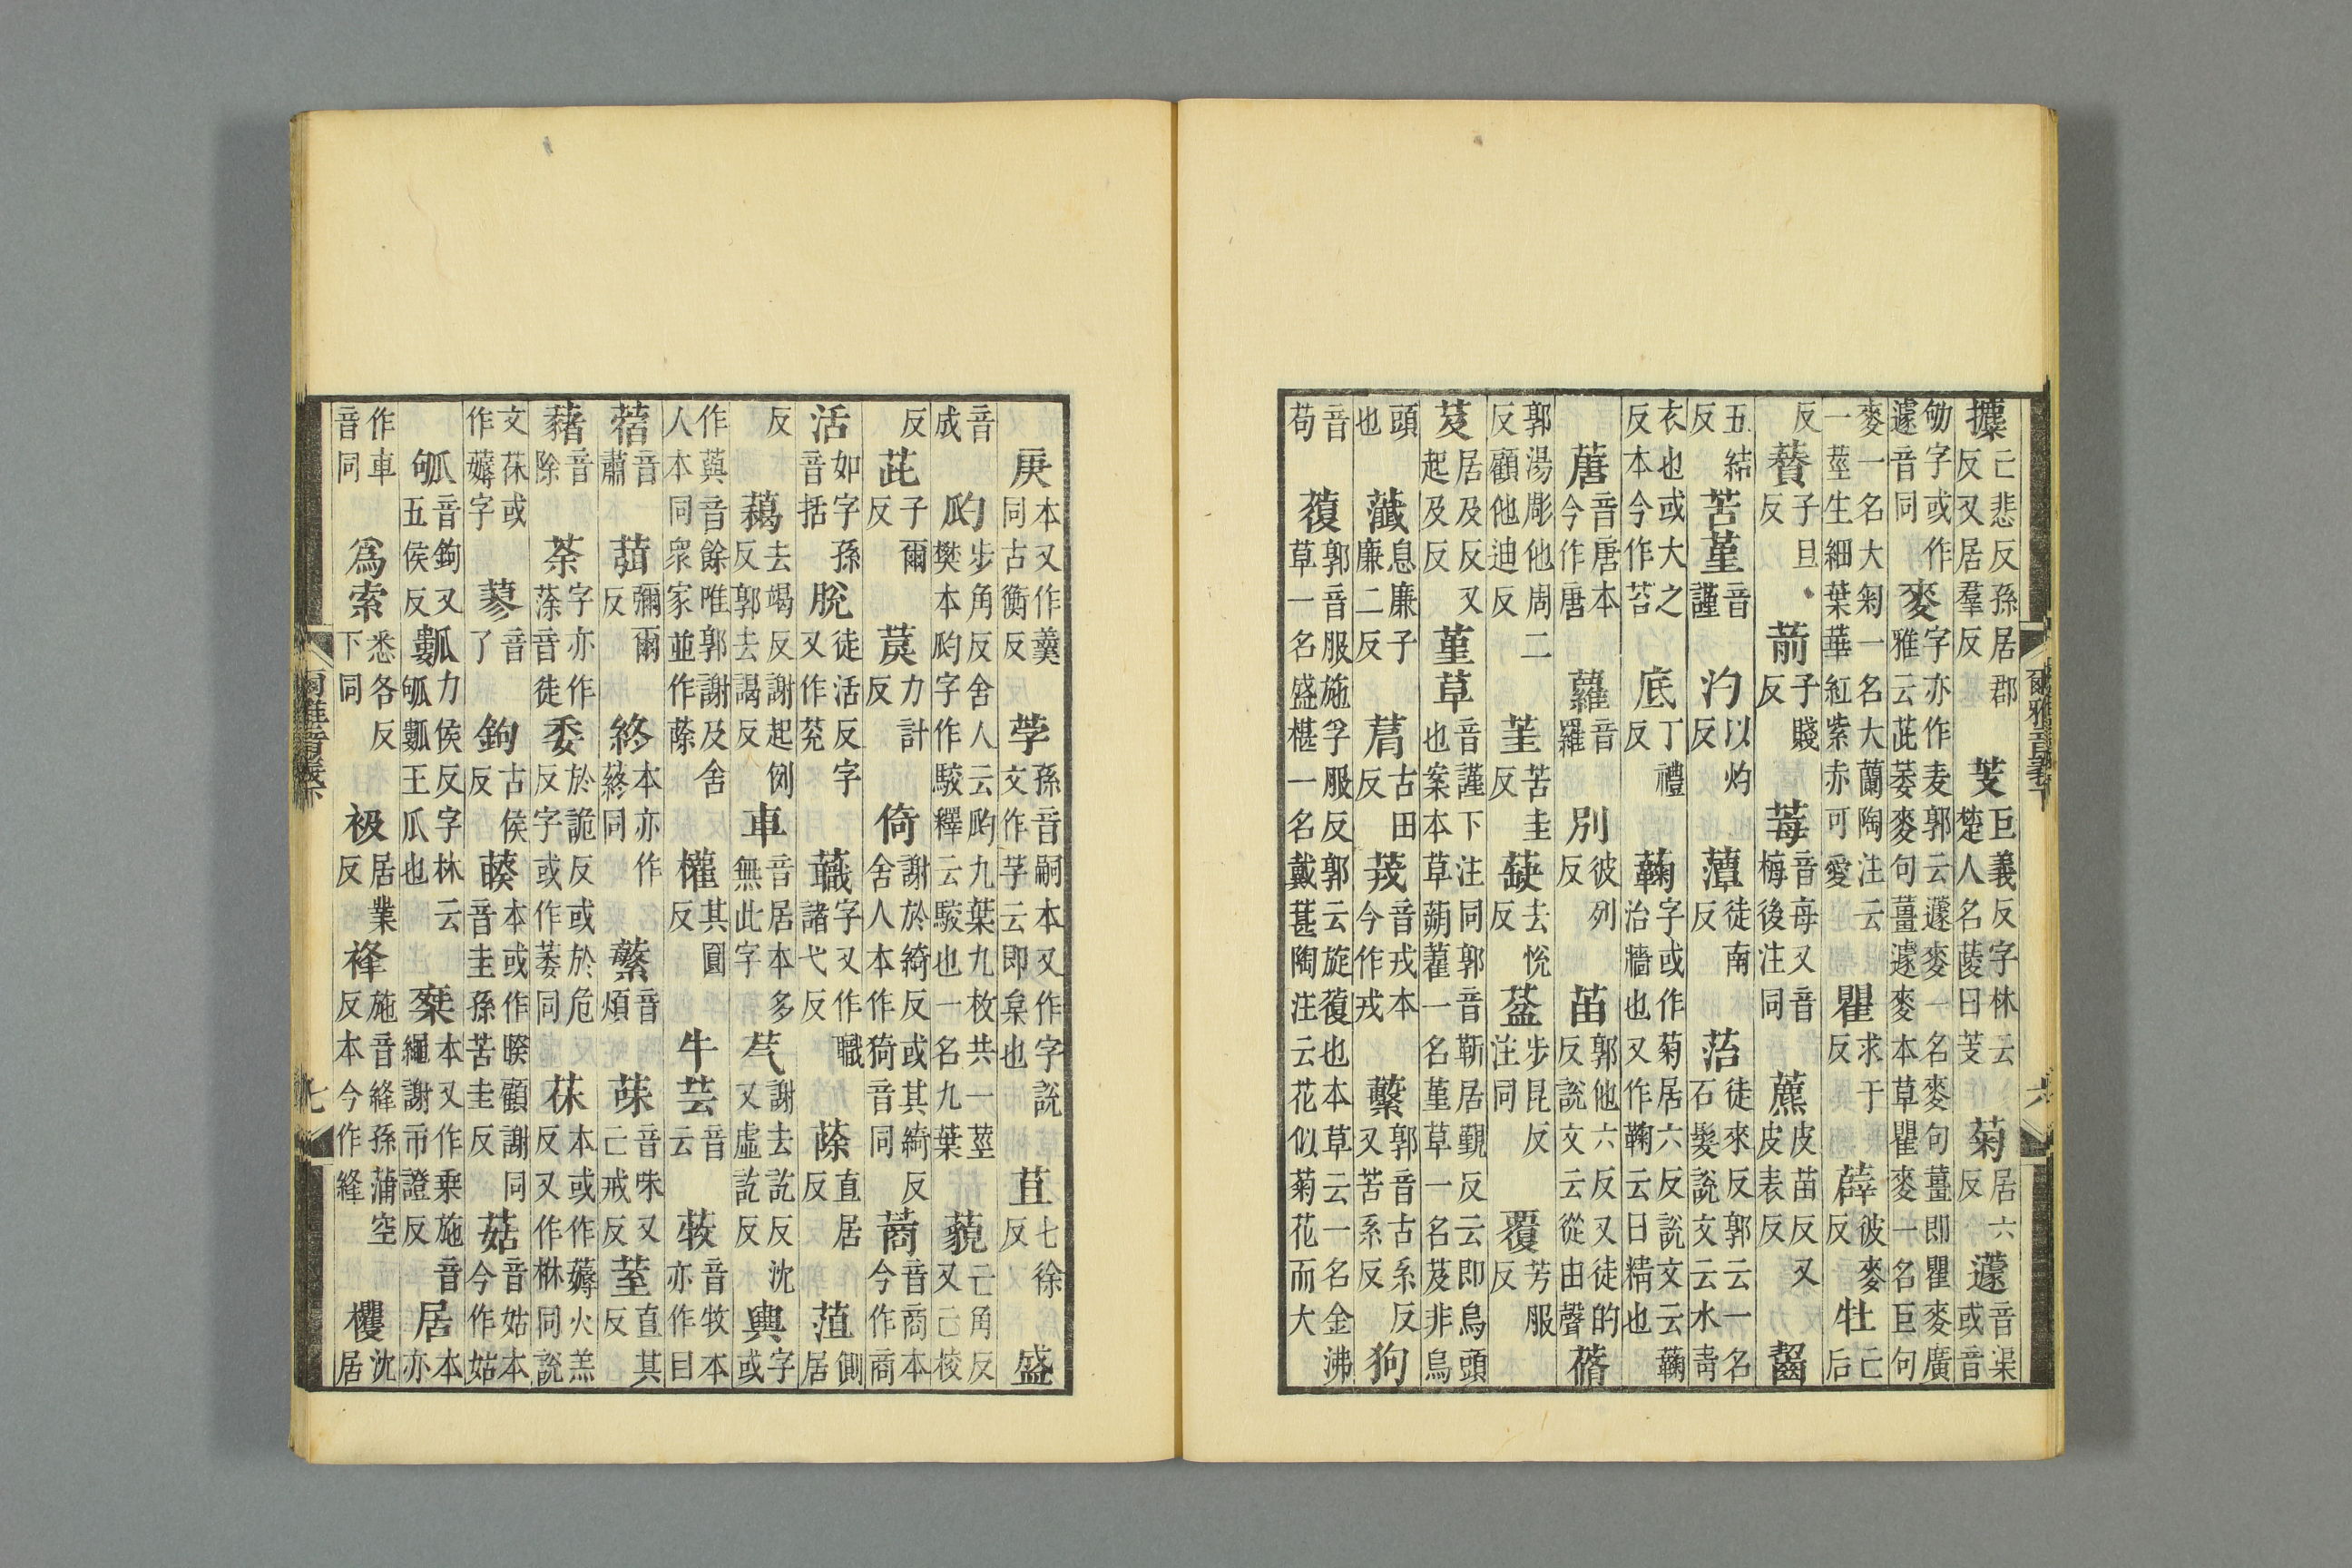 攗亡悲反孫居郡反又居羣反芰巨義反字林云楚人名蔆曰芰菊居六反蘧音渠或音
劬字或作蘧音同麥字亦作麦郭云蘧麥一名麥句薑即瞿麥廣雅云茈萎麥句薑蘧麥本草瞿麥一名巨句
麥一名大菊一名大蘭陶注云一莖生細葉華紅紫赤可愛瞿求于反薜彼麥反牡亡后
反薋子旦反葥子賤反莓音母又音梅後注同藨皮苗反又皮表反齧
五結反苦堇音謹汋以灼反藫徒南反菭徒來反郭云一名石髮說文云水青
衣也或大之反本今作苔底丁禮反蘜字或作菊居六反說文云蘜治牆也又作鞠云日精也
蓎音唐本今作唐蘿音羅別彼列反苗郭他六反又徒的反說文云從由聲蓨
郭湯彫他周二反顧他迪反茥苦圭反蒛去悅反葐步昆反注同覆芳服反
芨居及反又起及反堇草音謹下注同郭音靳居覲反云即烏頭也案本草蒴藋一名堇草一名芨非烏
頭也虃息廉子廉二反菺古田反茙音戎本今作戎蘻郭音古系反又苦系反狗
音苟蕧郭音服施孚服反郭云旋蕧也本草云一名金沸草一名盛椹一名戴葚陶注云花似菊花而大
爾雅音義下 六
庚本又作羹同古衡反茡孫音嗣本又作字說文作芓云即枲也苴七徐反盛
音成瓝步角反舍人云瓝九葉九枚共一莖樊本瓝字作駮釋云駮也一名九葉藐亡角反又亡校
反茈子爾反䓞力計反倚謝於綺反或其綺反舍人本作猗音同蔏音商本今作商
活如字孫音括脫徒活反字又作莌蘵字又作職諸弋反蒢直居反菹側居
反藒去竭反謝起例反郭去謁反車音居本多無此字芞謝去訖反沈又虛訖反輿字或
作藇音餘唯郭謝及舍人本同衆家並作蒢權其圓反牛芸音云音牧本亦作目
蓿音肅葞彌爾反終本亦作蔠同蘩音煩菋音味又亡戒反荎直其反
藸音除荼字亦作蒤音徒委於詭反或於危反字或作萎同茠本或作薅火羔反又作㭒同說
文茠或作薅字蓼音了鉤古侯反藈本或作睽顧謝同音圭孫苦圭反菇音姑本今作姑
音鉤又五侯反力侯反字林云王瓜也椉本又作乗施音繩謝市證反居本亦
作車音同爲索悉各反下同衱居業反袶施音絳孫蒲空反本今作絳欔沈居
爾雅音義下 七